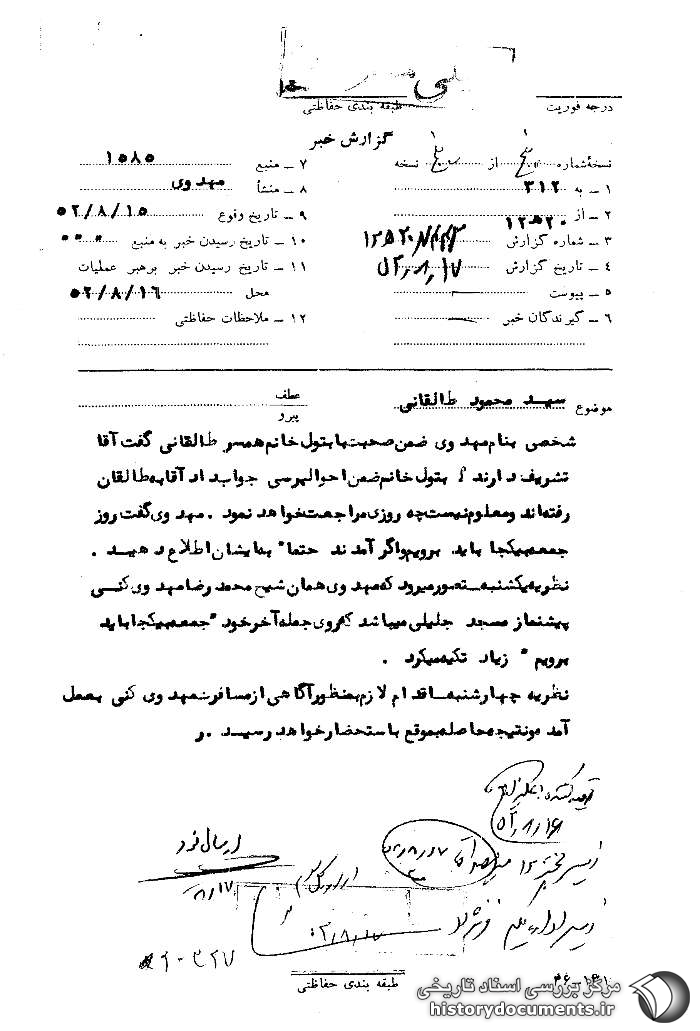 طبقه بندی حفاظتی
درجه فوریت
گزارش خبر
نسخهٔ شماره از نسخه
۱ ـ به ۳۱۲
۲ ـ از ۱۲ﻫ۲۰
۳ ـ شماره گزارش
۴ ـ تاریخ گزارش
۵ ـ پیوست
۶ ـ گیرندگان خبر
۷ ـ منبع ۱۵۸۵
۸ ـ منشأ مهدوی
۹ ـ تاریخ وقوع ۵۲/۸/۱۵
۱۰ ـ تاریخ رسیدن خبر به منبع ۰۰۰
۱۱ ـ تاریخ رسیدن خبر برهبر عملیات
محل ۵۲/۸/۱۶
۱۲ ـ ملاحظات حفاظتی
موضوع سید محمود طالقانی
عطف
پیرو
شخصی بنام مهدوی ضمن صحبت با بتول خانم همسر طالقانی گفت آقا
تشریف دارند ؟ بتول خانم ضمن احوالپرسی جواب داد آقا به طالقان
رفته اند و معلوم نیست چه روزی مراجعت خواهد نمود . مهدوی گفت روز
جمعه بیکجا باید برویم و اگر آمدند حتما" بما ایشان اطلاع دهید .
نظریه یکشنبه ـ تصور میرود که مهدوی همان شیخ محمد رضا مهدوی کنی
پیشنماز مسجد جلیلی میباشد که روی جمله آخر خود "جمعه بیکجا باید
برویم " زیاد تکیه میکرد .
نظریه چهارشنبه ـ اقدام لازم بمنظور آگاهی از مسافرت مهدوی کنی بعمل
آمده و نتیجه حاصله بموقع باستحضار خواهد رسید . ر
ارسال شود
۸/۱۷
۵۲/۸/۱۶
۵۲/۸/۱۷
طبقه بندی حفاظتی
مرکز بررسی اسناد تاریخی
historydocuments.ir